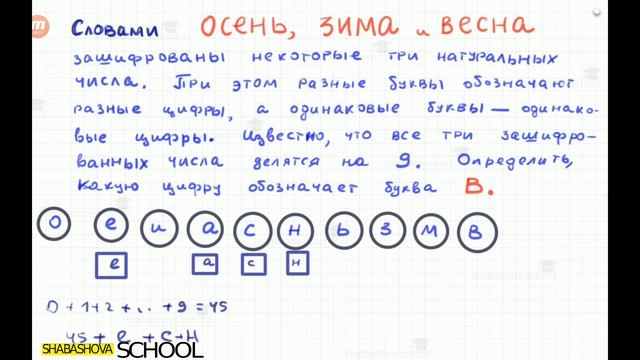 Словами ОСЕНЬ, ЗИМА и ВЕСНА
зашифрованы некоторые три натуральных
числа. При этом разные буквы обозначают
разные цифры, а одинаковые буквы — одинако-
вые цифры. Известно, что все три зашифро-
ванных числа делятся на 9. Определить,
какую цифру обозначает буква В.
о е и а с н ь з м в
е а с н
0 + 1 + 2 + ... + 9 = 45
45 + е + с + н
SHABASHOVA SCHOOL